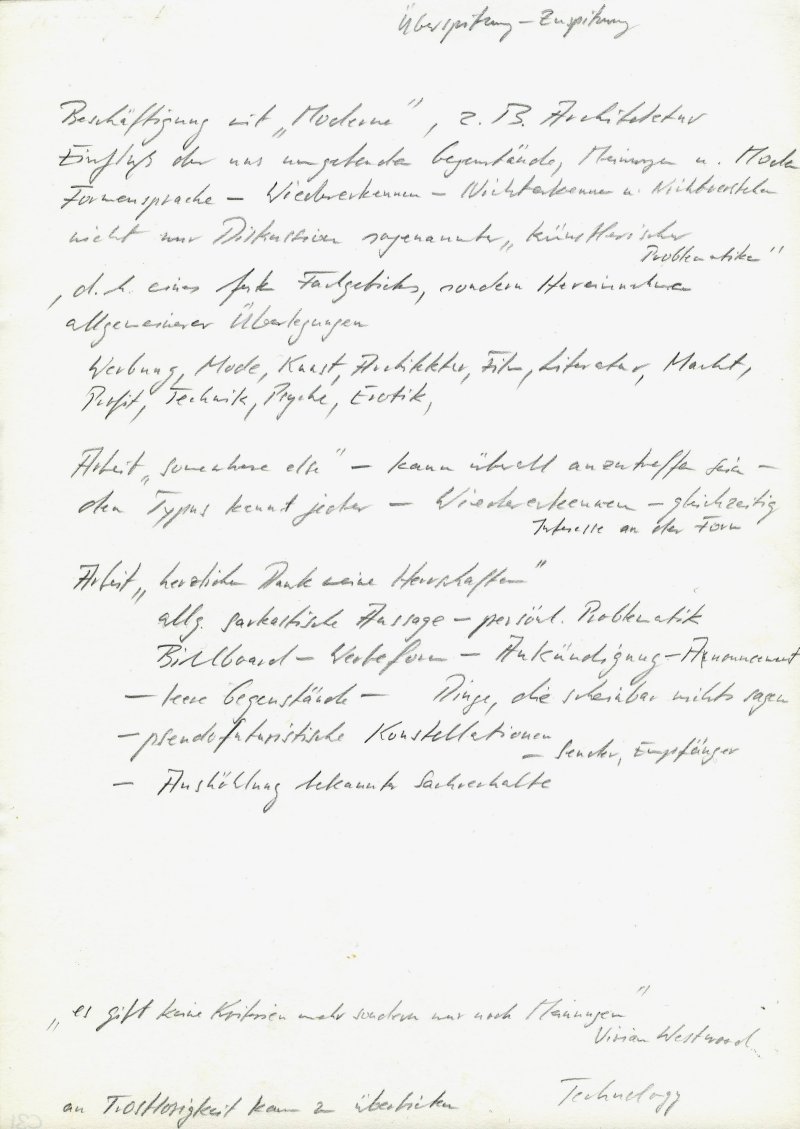 Überspitzung – Zuspitzung
Beschäftigung mit „Moderne", z. B. Architektur
Einfluß der uns umgebenden Gegenstände, Meinungen u. Moden
Formensprache – Wiedererkennen – Nichterkennen u. Nichtverstehen
nicht nur Diskussion sogenannter „künstlerischer
Problematiken"
, d. h. eines Fachgebiets, sondern Hereinnahme
allgemeinerer Überlegungen
Werbung, Mode, Kunst, Architektur, Film, Literatur, Macht,
Profit, Technik, Psyche, Erotik,
Arbeit „somewhere else" – kann überall anzutreffen sein –
den Typus kennt jeder – Wiedererkennen – gleichzeitig
Interesse an der Form
Arbeit „herzlichen Dank meine Herrschaften"
allg. sarkastische Aussage – persönl. Problematik
Billboard – Werbeform – Ankündigung – Announcement
– leere Gegenstände – Dinge, die scheinbar nichts sagen
– pseudofuturistische Konstellationen
– Sender, Empfänger
– Aushöhlung bekannter Sachverhalte
„es gibt keine Kriterien mehr sondern nur noch Meinungen"
Vivian Westwood
Technology
an Trostlosigkeit kaum zu überbieten